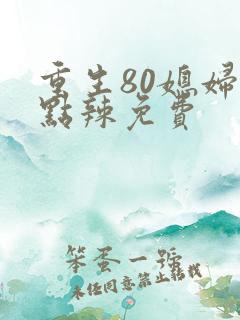 重生80媳婦
點辣免費
笨蛋一號
未经同意禁止转载